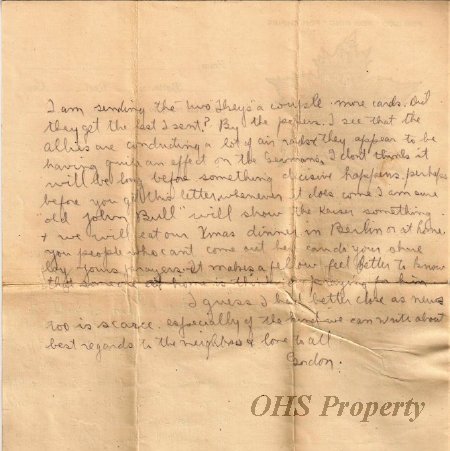 I am sending the two boys a couple more cards. Did
they get the last I sent? By the papers I see that the
allies are conducting a lot of air raids & they appear to be
having quite an effect on the Germans. I dont think it
will be long before something decisive happens, perhaps
before you get this letter, whenever it does come I am sure
"old John Bull" will show the Kaiser something
& we will eat our Xmas dinner in Berlin or at home
you people who can't come out here can do your share
by yours prayers. It makes a fellow feel better to know
that someone at home is praying for him
I guess I had better close as news
too is scarce. especially of the kind we can write about
best regards to the neighbors & love to all
Gordon.
OHS Property